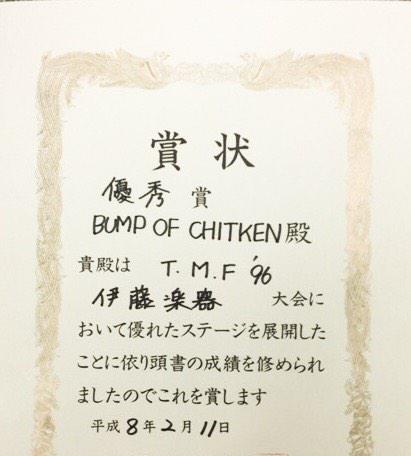 賞状
優秀賞
BUMP OF CHITKEN殿
貴殿は T.M.F '96
伊藤楽器 大会に
おいて優れたステージを展開した
ことに依り頭書の成績を修められ
ましたのでこれを賞します
平成8年2月11日